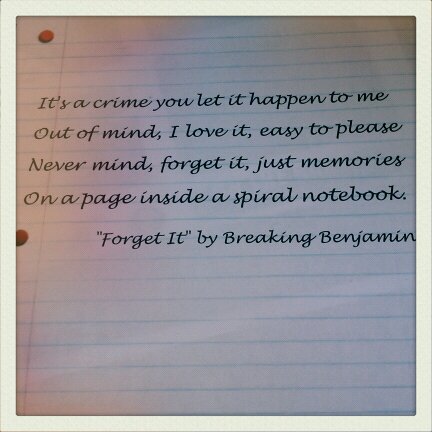 It's a crime you let it happen to me
Out of mind, I love it, easy to please
Never mind, forget it, just memories
On a page inside a spiral notebook.
"Forget It" by Breaking Benjamin